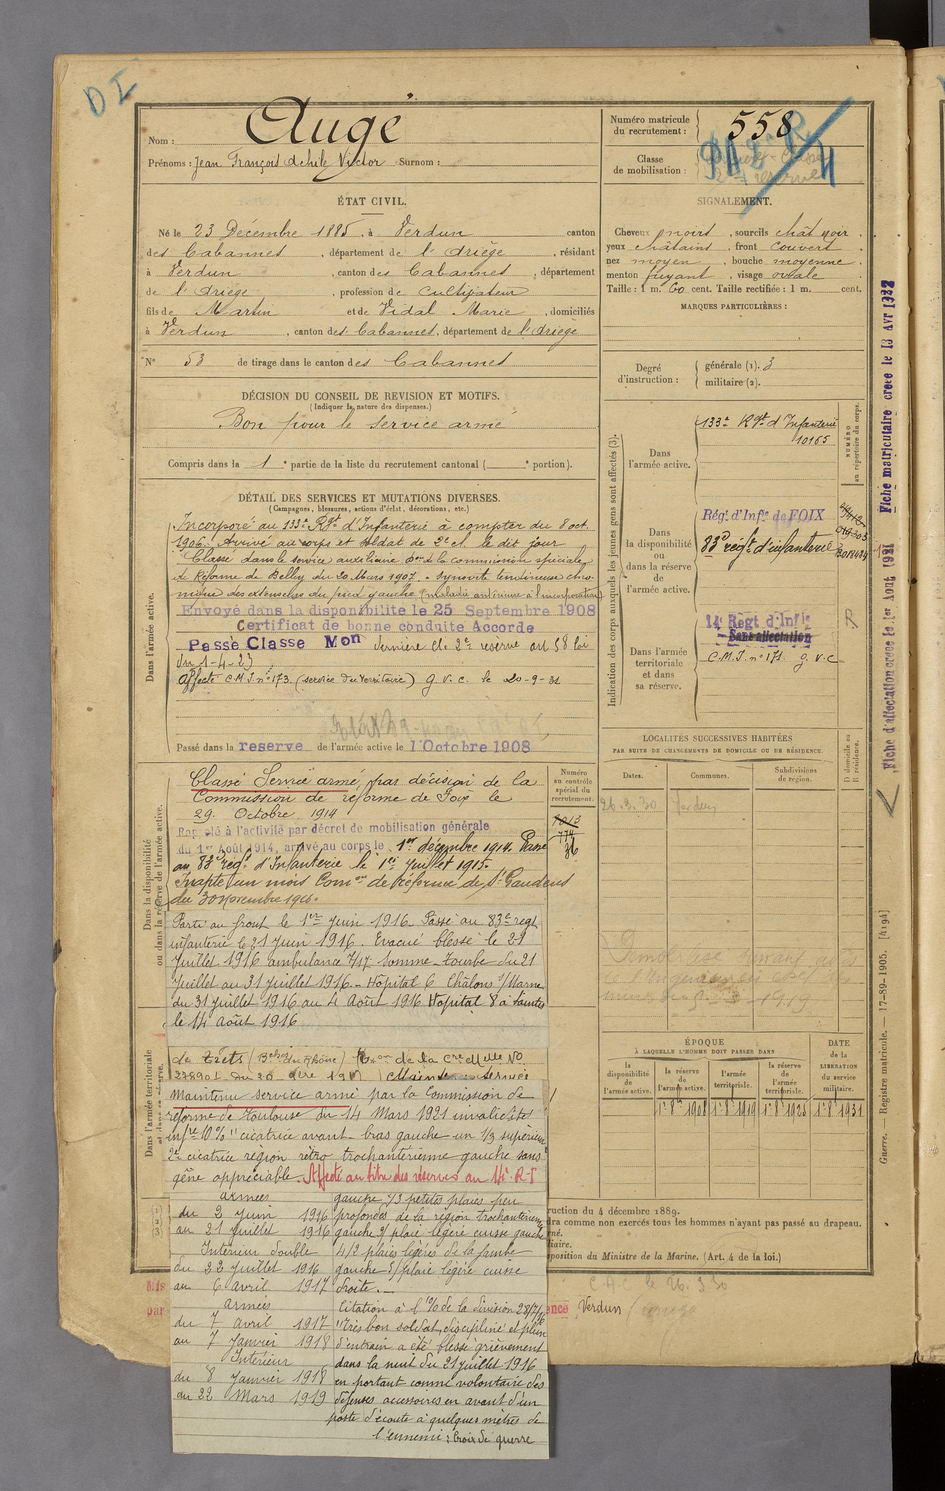 D I
Nom : Augé
Prénoms : Jean François Achile Victor Surnom :
Numéro matricule du recrutement : 558
Classe de mobilisation :
ÉTAT CIVIL.
Né le 23 Décembre 1885, à Verdun canton
des Cabannes, département de l'Ariège, résidant
à Verdun, canton des Cabannes, département
de l'Ariège, profession de Cultivateur
fils de Martin et de Vidal Marie, domiciliés
à Verdun, canton des Cabannes, département de l'Ariège
N° 53 de tirage dans le canton des Cabannes
SIGNALEMENT.
Cheveux noirs, sourcils chât noir.
yeux châtains, front couvert
nez moyen, bouche moyenne.
menton fuyant, visage ovale.
Taille : 1 m. 60 cent. Taille rectifiée : 1 m. cent.
MARQUES PARTICULIÈRES :
DÉCISION DU CONSEIL DE REVISION ET MOTIFS.
(Indiquer la nature des dispenses.)
Bon pour le service armé
Compris dans la 1e partie de la liste du recrutement cantonal ( e portion).
Degré d'instruction :
générale (1). 3
militaire (2).
DÉTAIL DES SERVICES ET MUTATIONS DIVERSES.
(Campagnes, blessures, actions d'éclat, décorations, etc.)
Dans l'armée active.
Incorporé au 133e Rgt d'Infanterie à compter du 8 oct.
1906. Arrivé au corps et soldat de 2e cl. le dit jour
Classé dans le service auxiliaire don de la commission spéciale
de Réforme de Belley du 20 Mars 1907. Synovite tendineuse chro-
nique des extenseurs du pied gauche (maladie antérieure à l'incorporation)
Envoyé dans la disponibilité le 25 Septembre 1908
Certificat de bonne conduite Accordé
Passé Classe Mon dernière cl. 2e réserve art 58 loi
du 1-4-23
Affecté C.M.I. n° 173 (service du territoire) g.v.c. le 20-9-31
Passé dans la reserve de l'armée active le 1 Octobre 1908
Indication des corps auxquels les jeunes gens sont affectés (3).
NUMÉRO au répertoire du corps.
Dans l'armée active.
133e Rgt d'Infanterie
10165
Dans la disponibilité ou dans la réserve de l'armée active.
Régt d'Infie de FOIX
83e régt d'infanterie
Dans l'armée territoriale et dans sa réserve.
14e Regt d'Infie
Sans affectation
C.M.I. n° 171. g.v.c.
LOCALITÉS SUCCESSIVES HABITÉES
PAR SUITE DE CHANGEMENTS DE DOMICILE OU DE RÉSIDENCE.
D domicile ou R résidence.
Dates. Communes. Subdivisions de région.
26.3.30 Verdun
Dans la disponibilité ou dans la réserve de l'armée active.
Numéro au contrôle spécial du recrutement.
Classé Service armé, par décision de la
Commission de réforme de Foix le
29. Octobre 1914
Rappelé à l'activité par décret de mobilisation générale
du 1er Août 1914, arrivé au corps le 1er décembre 1914. Passé
au 83e régt d'Infanterie le 1er Juillet 1915.
Inapte un mois Comon de réforme de St Gaudens
Parti au front le 1er Juin 1916. Passé au 83e regt
infanterie le 21 juin 1916. Evacué blessé le 21
Juillet 1916 ambulance 7/17 Somme-Tourbe du 21
Juillet au 31 juillet 1916. Hôpital 6 Châlons s/Marne
du 31 juillet 1916 au 4 Août 1916 Hôpital 8 à Saintes
le 14 août 1916
Dans l'armée territoriale
Maintenu service armé par la Commission de
réforme de Toulouse du 14 Mars 1921 invalidité
infre 10% "cicatrice avant-bras gauche un 1/3 supérieur
2e cicatrice région rétro trochantérienne gauche sans
gêne appréciable. Affecté au titre des réserves au 14e R.I
armées
du 2 Juin 1916
au 21 Juillet 1916
Intérieur double
du 22 Juillet 1916
au 6 avril 1917
armées
du 7 avril 1917
au 7 Janvier 1918
Intérieur
du 8 Janvier 1918
au 22 Mars 1919
gauche 3/3 petites plaies peu
profondes de la région trochantérienne
gauche 3/ plaie légère cuisse gauche
4/2 plaies légères de la jambe
gauche 5/ plaie légère cuisse
droite.
Citation à l'% de la division 28/7/16
"Très bon soldat, discipliné et plein
d'entrain a été blessé grièvement
dans la nuit du 21 juillet 1916
en portant comme volontaire des
défenses accessoires en avant d'un
poste d'écoute à quelques mètres de
l'ennemi : Croix de guerre
ÉPOQUE
À LAQUELLE L'HOMME DOIT PASSER DANS
la disponibilité de l'armée active. la réserve de l'armée active. l'armée territoriale. la réserve de l'armée territoriale.
DATE de la LIBÉRATION du service militaire.
1er 8bre 1908 1er 8 1919 1er 8 1925 1er 8 1931
ruction du 4 décembre 1889.
dra comme non exercés tous les hommes n'ayant pas passé au drapeau.
position du Ministre de la Marine. (Art. 4 de la loi.)
C.H.C. le 26.3.30
Verdun
Fiche d'affectation créée le 1er Août 1921
Fiche matriculaire créée le 13 Avr 1922
Guerre. — Registre matricule. — 17-89-1905. [4194]